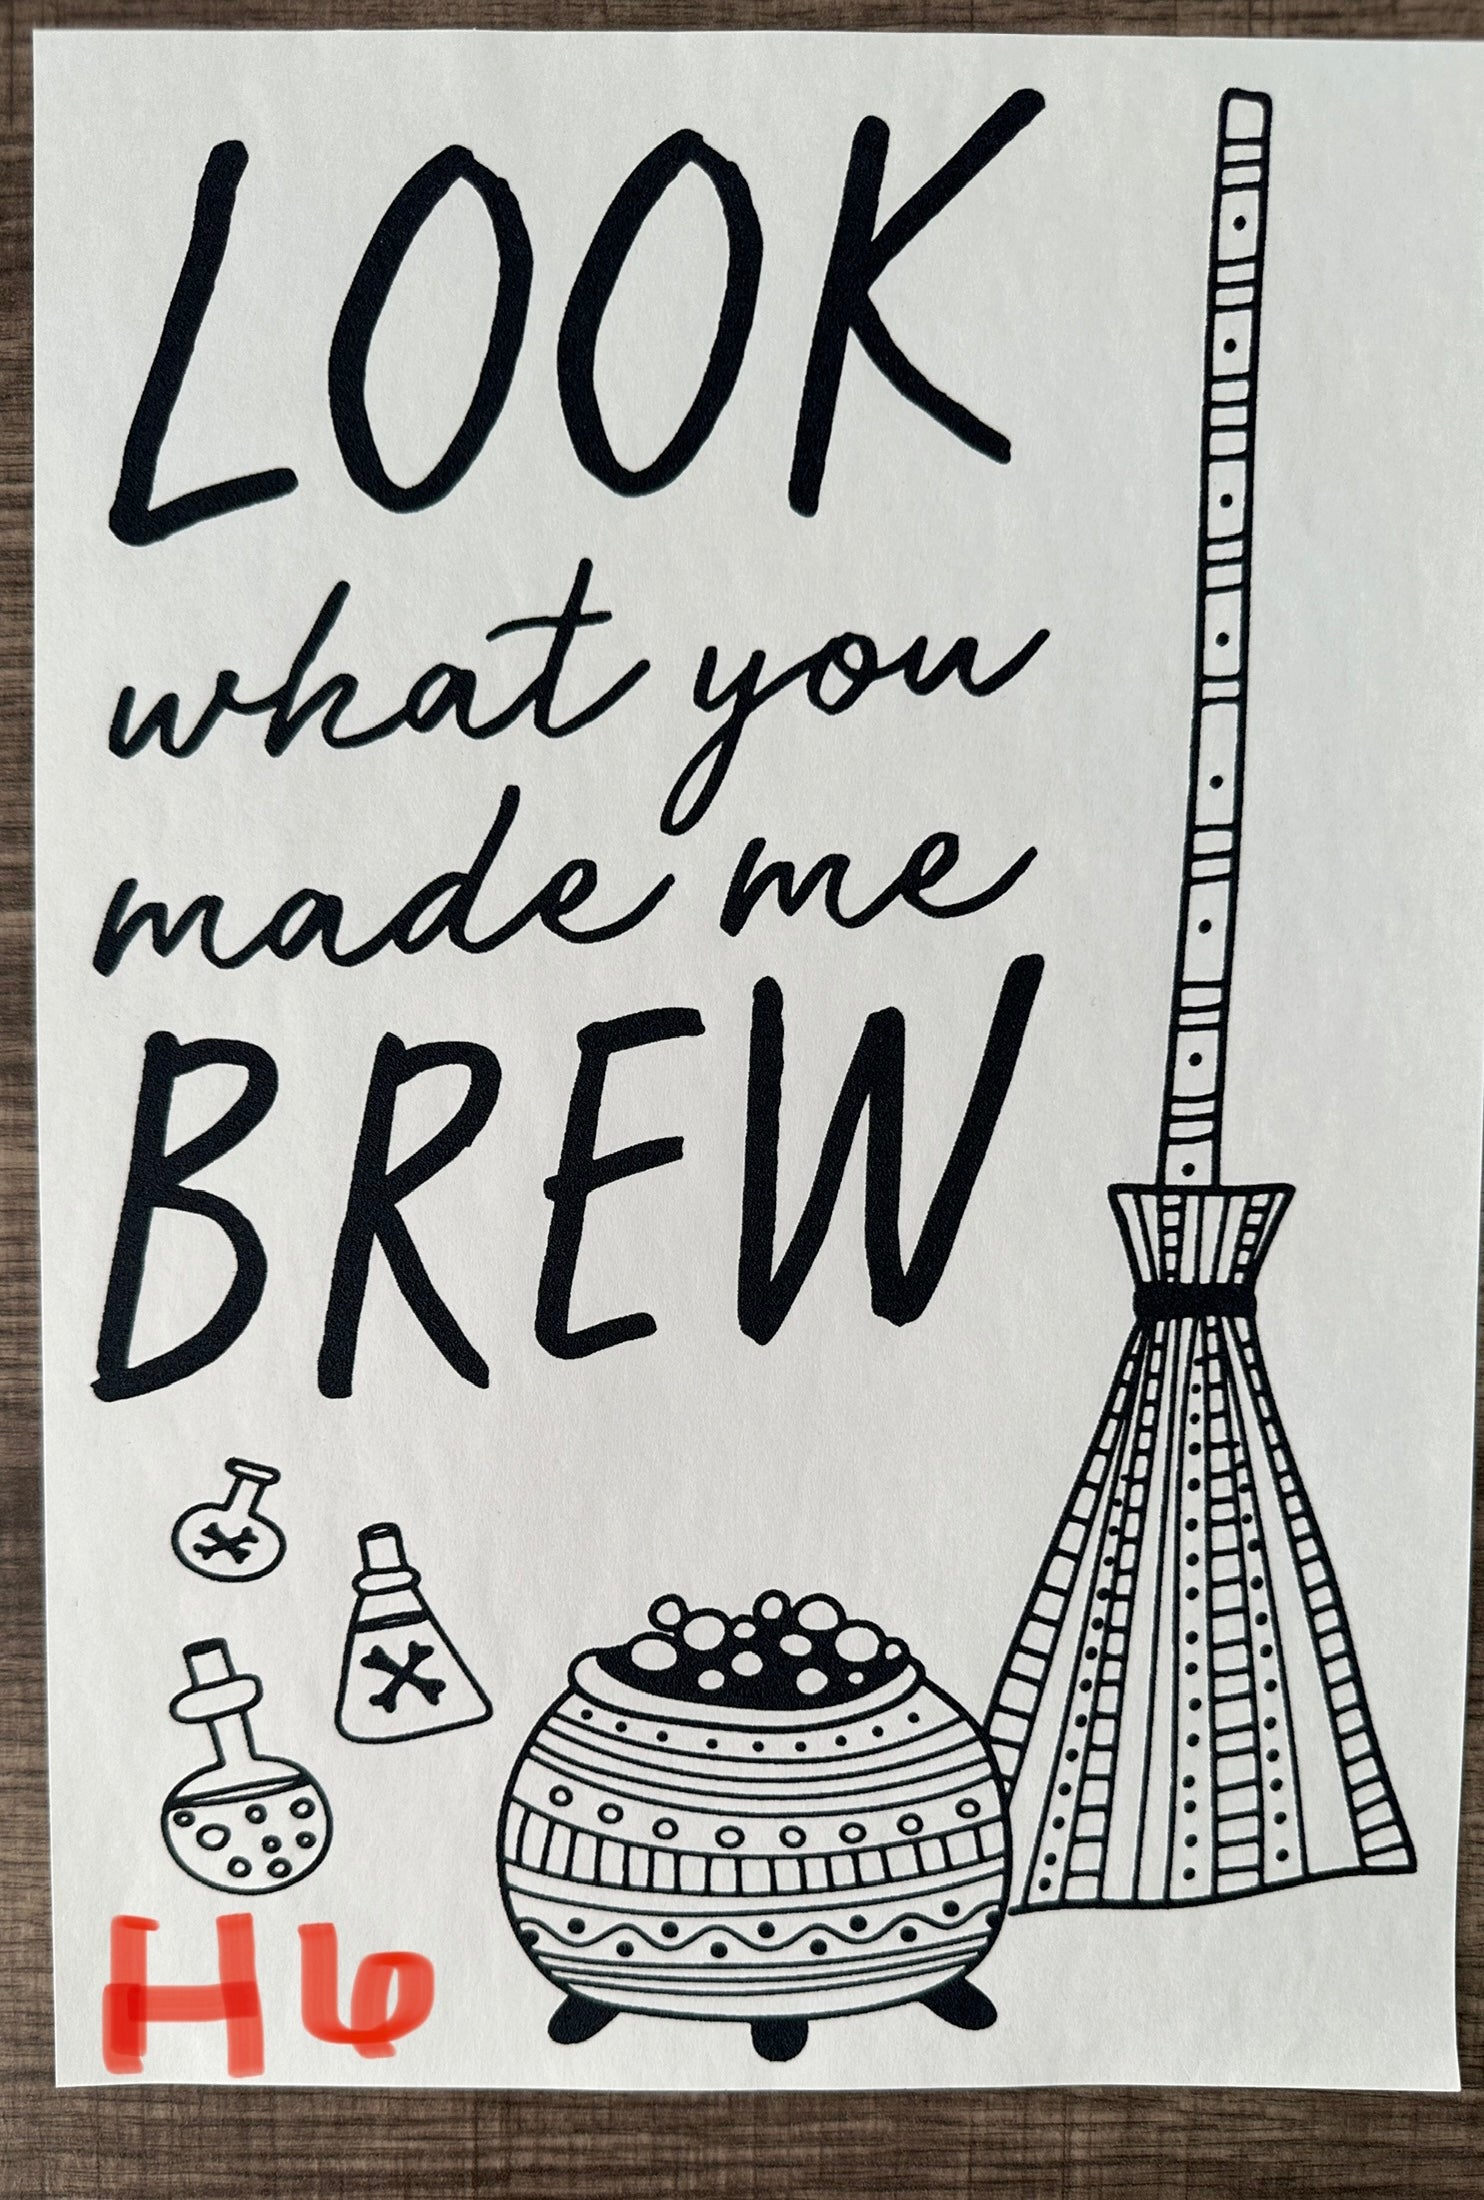 LOOK
what you
made me
BREW
H6